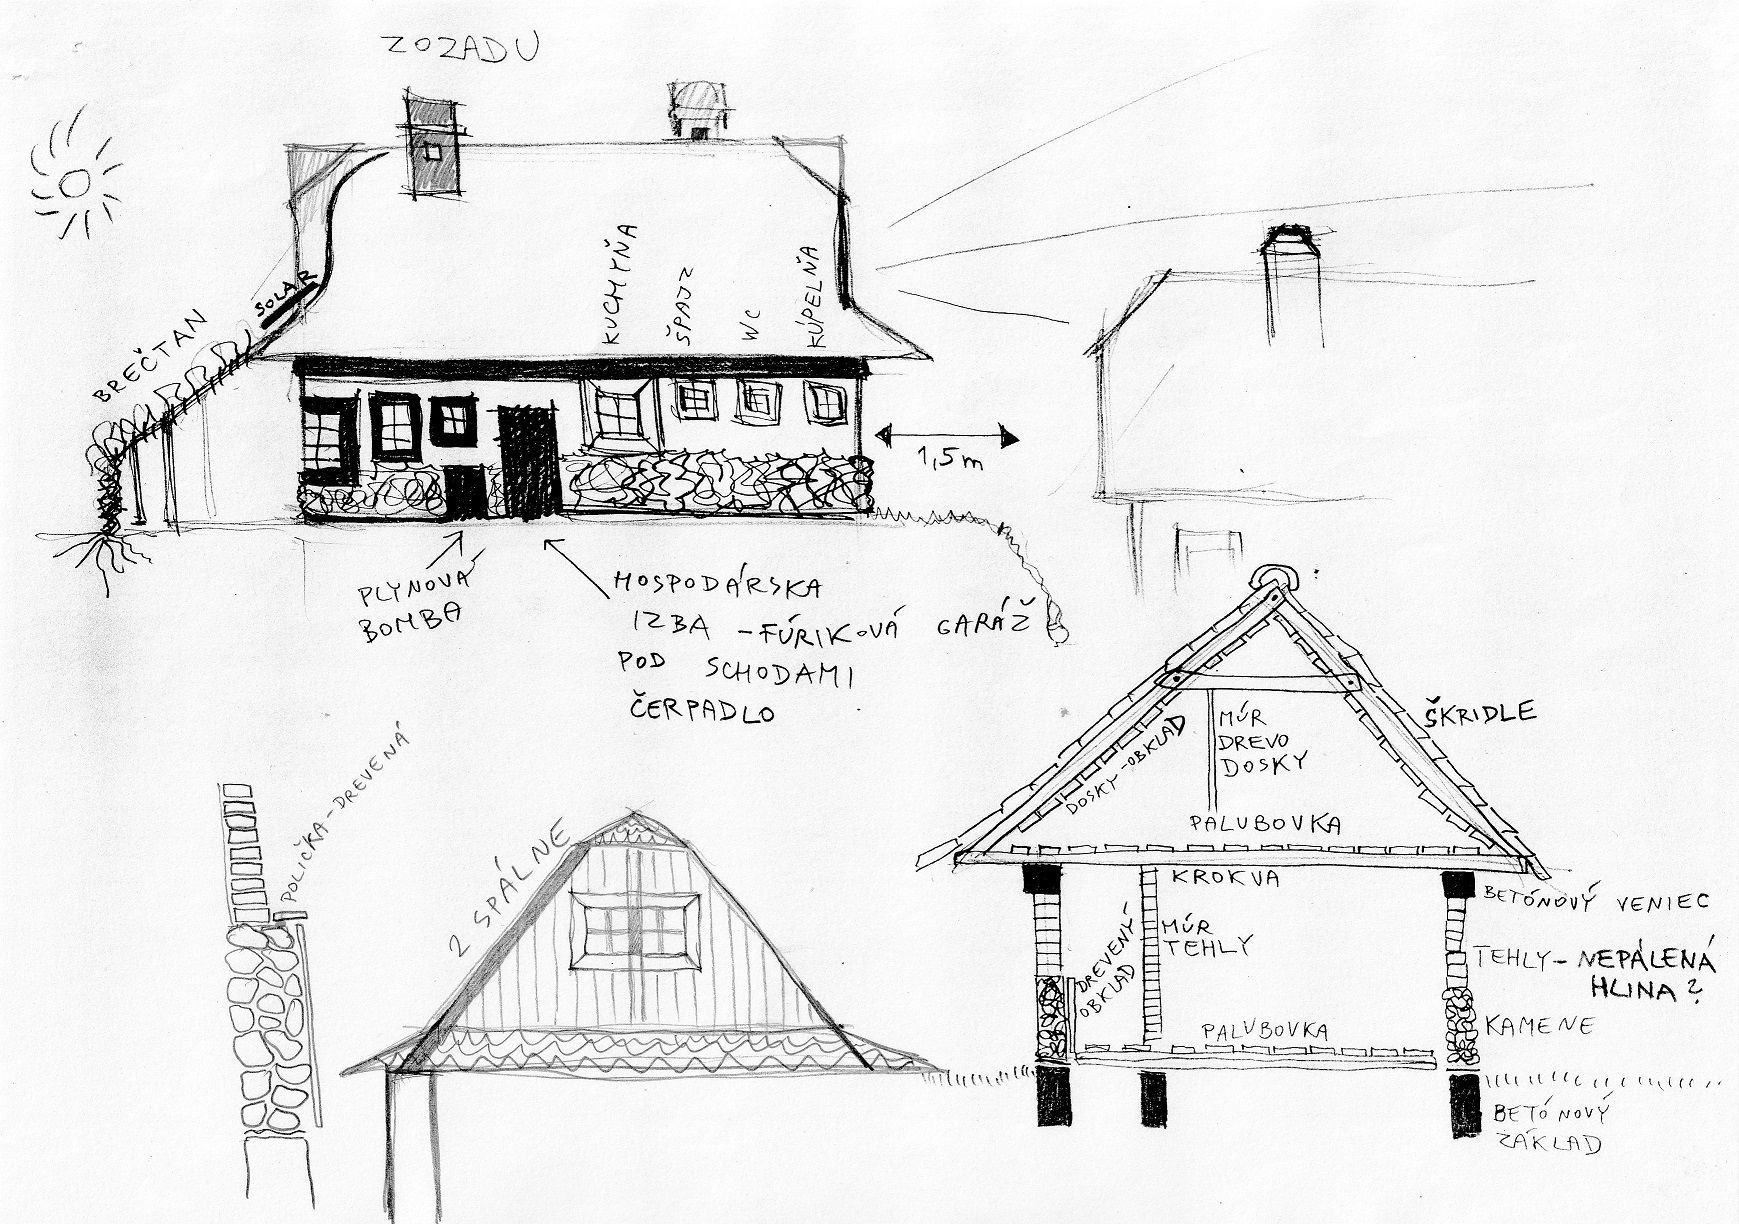 ZOZADU
BREČTAN
SOLAR
KUCHYŇA
ŠPAJZ
WC
KÚPELŇA
1,5m
PLYNOVÁ
BOMBA
HOSPODÁRSKA
IZBA - FÚRIKOVÁ GARÁŽ
POD SCHODAMI
ČERPADLO
POLIČKA - DREVENÁ
2 SPÁLNE
ŠKRIDLE
DOSKY - OBKLAD
MÚR
DREVO
DOSKY
PALUBOVKA
KROKVA
BETÓNOVÝ VENIEC
DREVENÝ
OBKLAD
MÚR
TEHLY
TEHLY - NEPÁLENÁ
HLINA?
KAMENE
PALUBOVKA
BETÓNOVÝ
ZÁKLAD